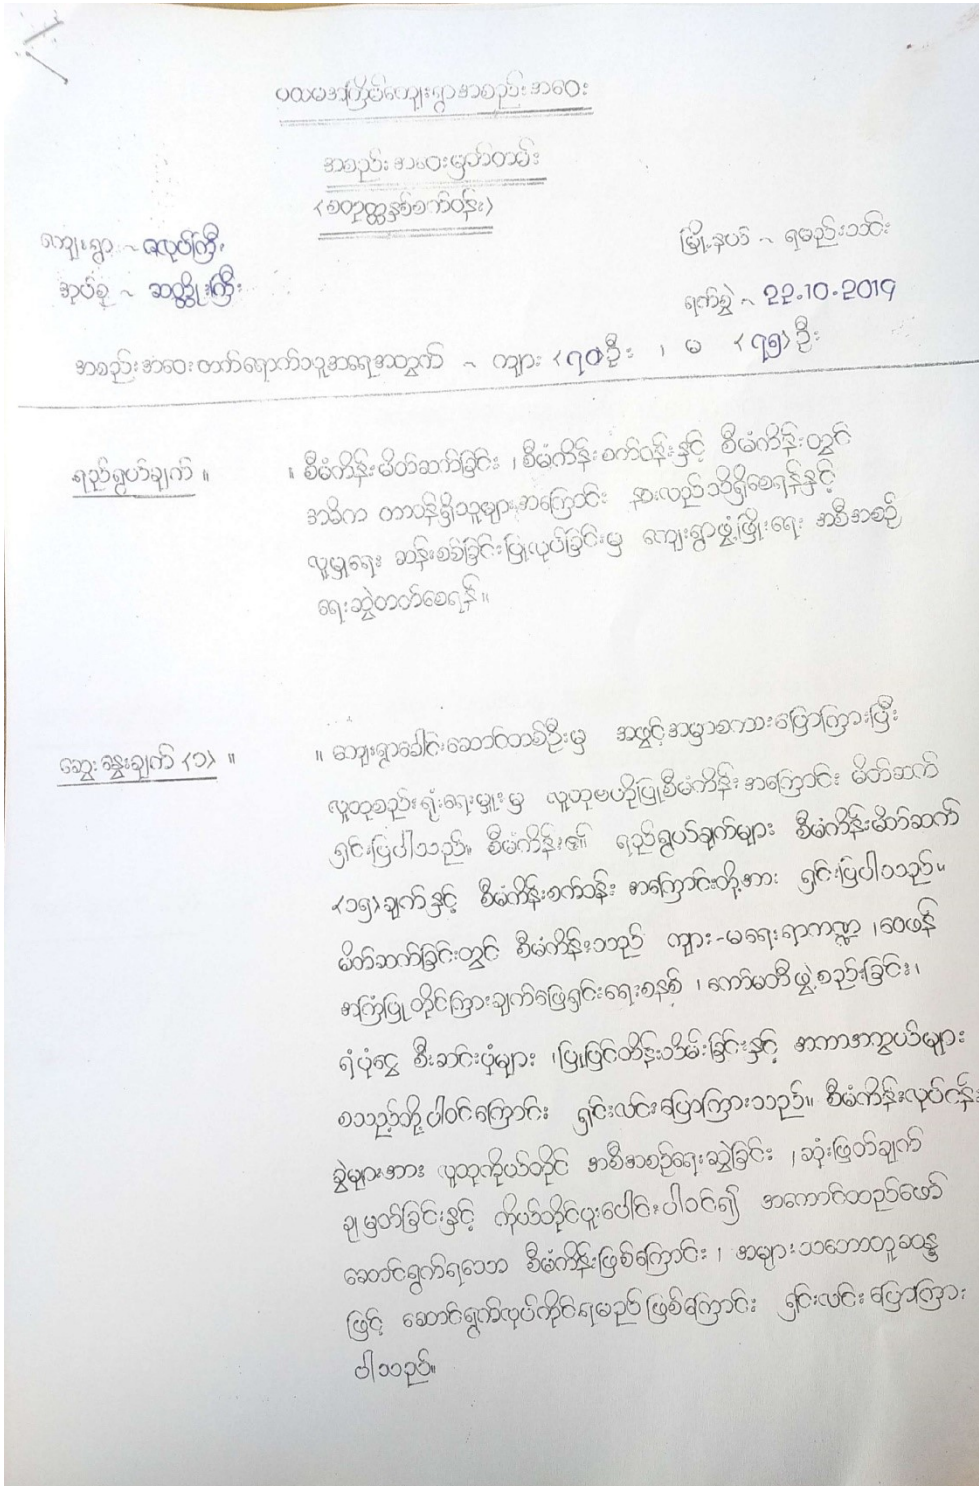 ပထမအကြိမ်ကျေးရွာအစည်းအဝေး
အစည်းအဝေးမှတ်တမ်း
<စတုတ္ထနှစ်စက်ဝန်း>
ကျေးရွာ ~ လုပ်ကြီး မြို့နယ် ~ ရမည်းသင်း
အုပ်စု ~ ဆတ္ထိုးကြီး ရက်စွဲ ~ 22.10.2019
အစည်းအဝေးတက်ရောက်သူအရေအတွက် ~ ကျား <၇၀>ဦး ၊ မ <၇၅>ဦး
ရည်ရွယ်ချက် ။ ။ စီမံကိန်းမိတ်ဆက်ခြင်း ၊ စီမံကိန်းစက်ဝန်းနှင့် စီမံကိန်းတွင်
အဓိက တာဝန်ရှိသူများအကြောင်း နားလည်သိရှိစေရန်နှင့်
လူမှုရေး ဆန်းစစ်ခြင်းပြုလုပ်ခြင်းမှ ကျေးရွာဖွံ့ဖြိုးရေး အစီအစဉ်
ရေးဆွဲတတ်စေရန်။
ဆွေးနွေးချက် <၁> ။ ။ ကျေးရွာခေါင်းဆောင်တစ်ဦးမှ အဖွင့်အမှာစကားပြောကြားပြီး
လူထုစည်းရုံးရေးမှူးမှ လူထုဗဟိုပြုစီမံကိန်းအကြောင်း မိတ်ဆက်
ရှင်းပြပါသည်။ စီမံကိန်း၏ ရည်ရွယ်ချက်များ စီမံကိန်းမိတ်ဆက်
<၁၅>ချက်နှင့် စီမံကိန်းစက်ဝန်း အကြောင်းတို့အား ရှင်းပြပါသည်။
မိတ်ဆက်ခြင်းတွင် စီမံကိန်းသည် ကျား-မရေးရာကဏ္ဍ ၊ ဝေဖန်
အကြံပြုတိုင်ကြားချက်ဖြေရှင်းရေးစနစ် ၊ ကော်မတီဖွဲ့စည်းခြင်း ၊
ရံပုံငွေ စီးဆင်းပုံများ ၊ ပြုပြင်ထိန်းသိမ်းခြင်းနှင့် အကာအကွယ်များ
စသည်တို့ပါဝင်ကြောင်း ရှင်းလင်းပြောကြားသည်။ စီမံကိန်းလုပ်ငန်း
ခွဲများအား လူထုကိုယ်တိုင် အစီအစဉ်ရေးဆွဲခြင်း ၊ ဆုံးဖြတ်ချက်
ချမှတ်ခြင်းနှင့် ကိုယ်တိုင်ပူးပေါင်းပါဝင်၍ အကောင်ထည်ဖော်
ဆောင်ရွက်ရသော စီမံကိန်းဖြစ်ကြောင်း ၊ အများသဘောတူဆန္ဒ
ဖြင့် ဆောင်ရွက်လုပ်ကိုင်ရမည်ဖြစ်ကြောင်း ရှင်းလင်းပြောကြား
ပါသည်။